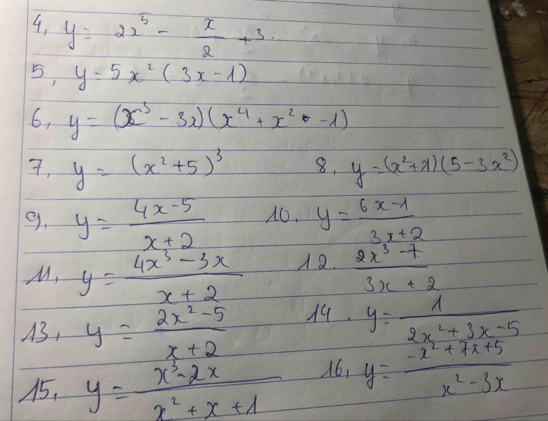 4, y = 2x⁵ - x/2 + 3.
5, y = 5x² (3x - 1)
6, y = (x³ - 3x)(x⁴ + x² - 1)
7, y = (x² + 5)³ 8, y = (x² + 1)(5 - 3x²)
9, y = (4x - 5)/(x + 2) 10, y = (6x - 1)/(3x + 2)
11, y = (4x³ - 3x)/(x + 2) 12. (2x³ - 7)/(3x + 2)
13, y = (2x² - 5)/(x + 2) 14. y = 1/(2x² + 3x - 5)
15, y = (x³ - 2x)/(x² + x + 1) 16, y = (-x² + 7x + 5)/(x² - 3x)